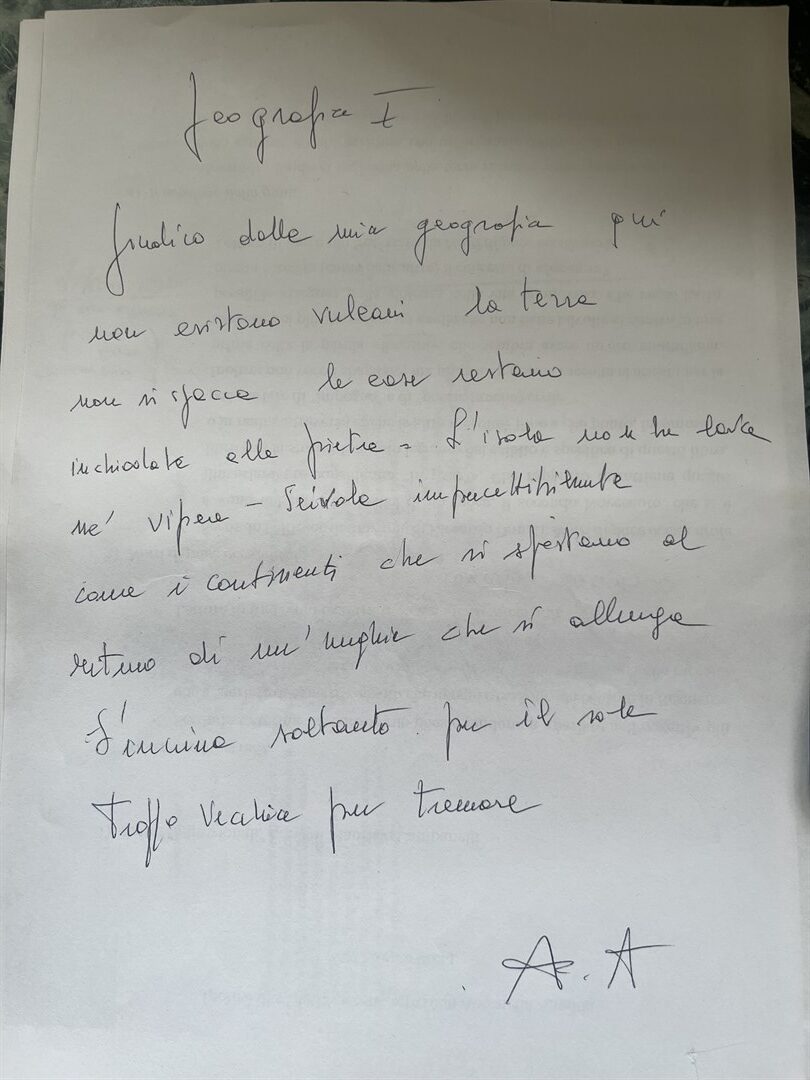 Geografia I
Giudico dalla mia geografia qui
non esistono vulcani la terra
non si spacca le case restano
inchiodate alla pietra - L'isola non ha lava
né vipere - Scivola impercettibilmente
come i continenti che si spostano al
ritmo di un'unghia che si allunga
S'incrina soltanto per il sole
troppo vecchia per tremare
A. A